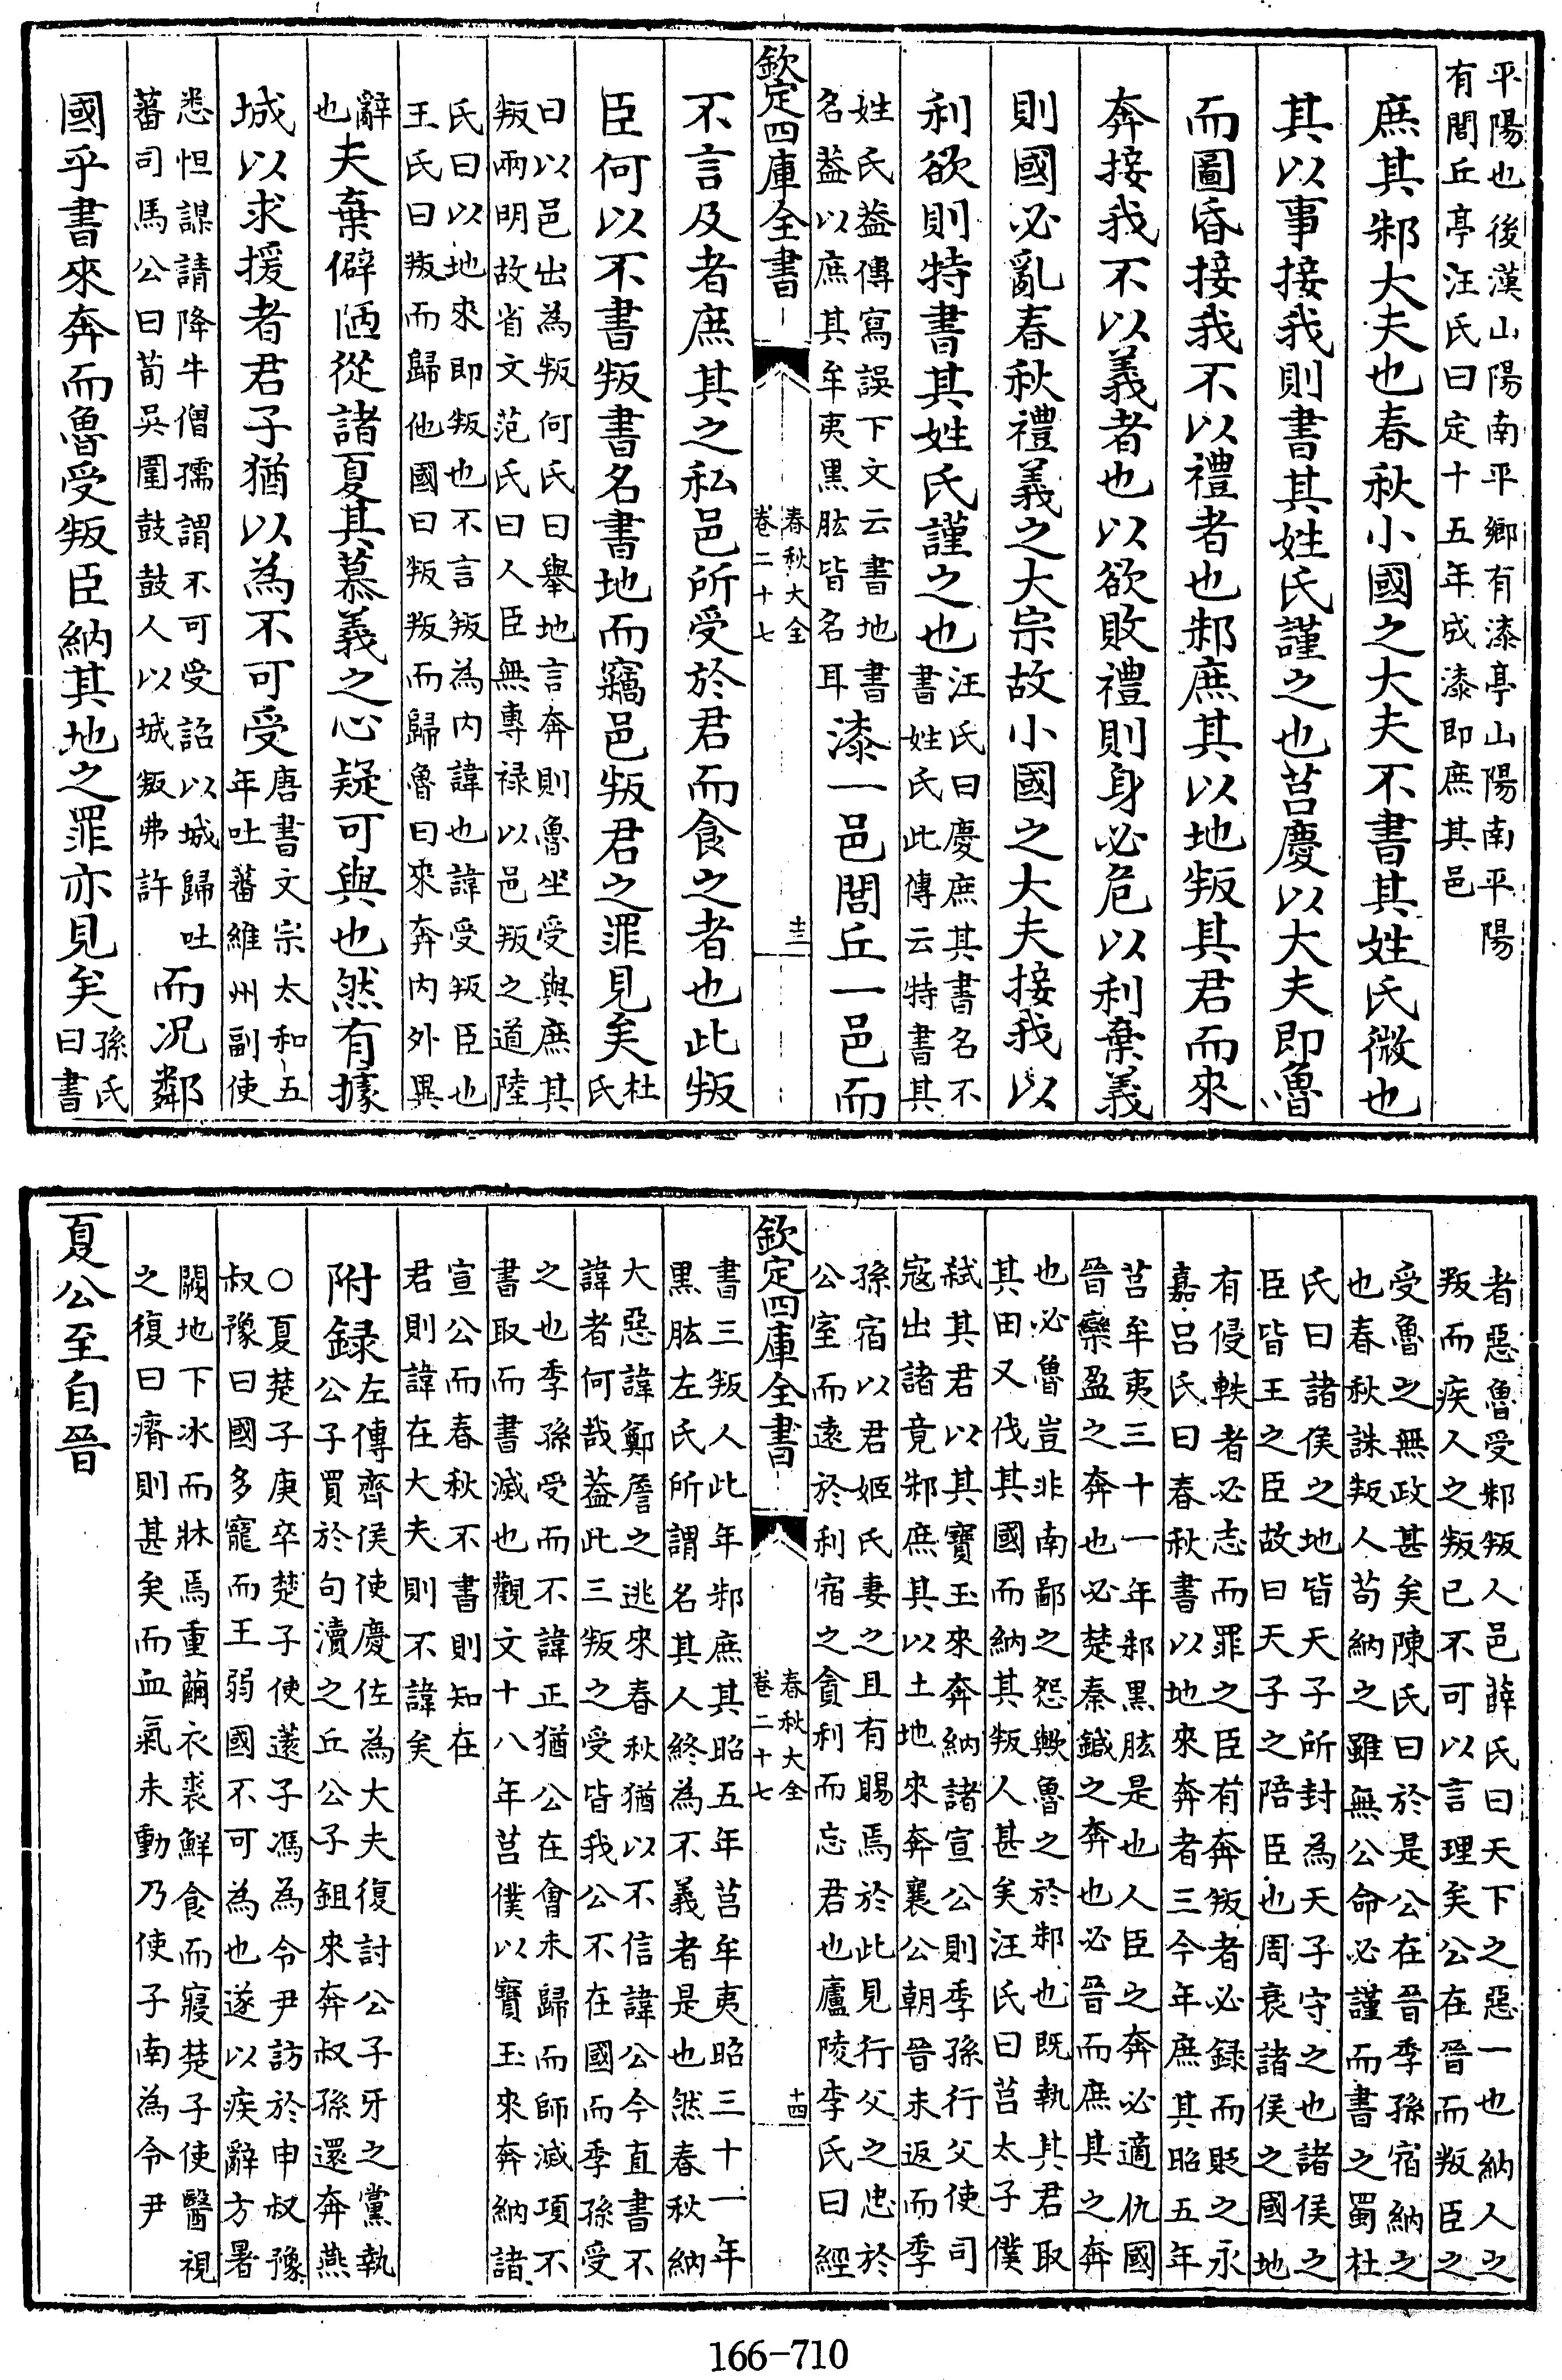 平陽也後漢山陽南平鄉有漆亭山陽南平陽
有閭丘亭汪氏曰定十五年成漆即庶其邑
庶其邾大夫也春秋小國之大夫不書其姓氏微也
其以事接我則書其姓氏謹之也莒慶以大夫即魯
而圖昏接我不以禮者也邾庶其以地叛其君而來
奔接我不以義者也以欲敗禮則身必危以利棄義
則國必亂春秋禮義之大宗故小國之大夫接我以
利欲則特書其姓氏謹之也
汪氏曰慶庶其書名不
書姓氏此傳云特書其
姓氏葢傳寫誤下文云書地書
名葢以庶其牟夷黑肱皆名耳
漆一邑閭丘一邑而
欽定四庫全書
春秋大全
卷二十七
十三
不言及者庶其之私邑所受於君而食之者也此叛
臣何以不書叛書名書地而竊邑叛君之罪見矣
杜
氏
曰以邑出為叛何氏曰舉地言奔則魯坐受與庶其
叛兩明故省文范氏曰人臣無專祿以邑叛之道陸
氏曰以地來即叛也不言叛為内諱也諱受叛臣也
王氏曰叛而歸他國曰叛叛而歸魯曰來奔内外異
辭
也
夫棄僻陋從諸夏其慕義之心疑可與也然有據
城以求援者君子猶以為不可受
唐書文宗太和五
年吐蕃維州副使
悉怛謀請降牛僧孺謂不可受詔以城歸吐
蕃司馬公曰荀吳圍鼓鼓人以城叛弗許
而況鄰
國乎書來奔而魯受叛臣納其地之罪亦見矣
孫氏
曰書
者惡魯受邾叛人邑薛氏曰天下之惡一也納人之
叛而疾人之叛已不可以言理矣公在晉而叛臣之
受魯之無政甚矣陳氏曰於是公在晉季孫宿納之
也春秋誅叛人苟納之雖無公命必謹而書之蜀杜
氏曰諸侯之地皆天子所封為天子守之也諸侯之
臣皆王之臣故曰天子之陪臣也周衰諸侯之國地
有侵軼者必志而罪之臣有奔叛者必録而貶之永
嘉吕氏曰春秋書以地來奔者三今年庶其昭五年
莒牟夷三十一年邾黑肱是也人臣之奔必適仇國
晉欒盈之奔也必楚秦鍼之奔也必晉而庶其之奔
也必魯豈非南鄙之怨歟魯之於邾也既執其君取
其田又伐其國而納其叛人甚矣汪氏曰莒太子僕
弑其君以其寶玉來奔納諸宣公則季孫行父使司
寇出諸竟邾庶其以土地來奔襄公朝晉未返而季
孫宿以君姬氏妻之且有賜焉於此見行父之忠於
公室而遠於利宿之貪利而忘君也廬陵李氏曰經
欽定四庫全書
春秋大全
卷二十七
十四
書三叛人此年邾庶其昭五年莒牟夷昭三十一年
黑肱左氏所謂名其人終為不義者是也然春秋納
大惡諱鄭詹之逃來春秋猶以不信諱公今直書不
諱者何哉葢此三叛之受皆我公不在國而季孫受
之也季孫受而不諱正猶公在會未歸而師滅項不
書取而書滅也觀文十八年莒僕以寶玉來奔納諸
宣公而春秋不書則知在
君則諱在大夫則不諱矣
附録
左傳齊侯使慶佐為大夫復討公子牙之黨執
公子買於句瀆之丘公子鉏來奔叔孫還奔燕
○夏楚子庚卒楚子使薳子馮為令尹訪於申叔豫
叔豫曰國多寵而王弱國不可為也遂以疾辭方暑
闕地下冰而牀焉重繭衣裘鮮食而寢楚子使醫視
之復曰瘠則甚矣而血氣未動乃使子南為令尹
夏公至自晉
166-710